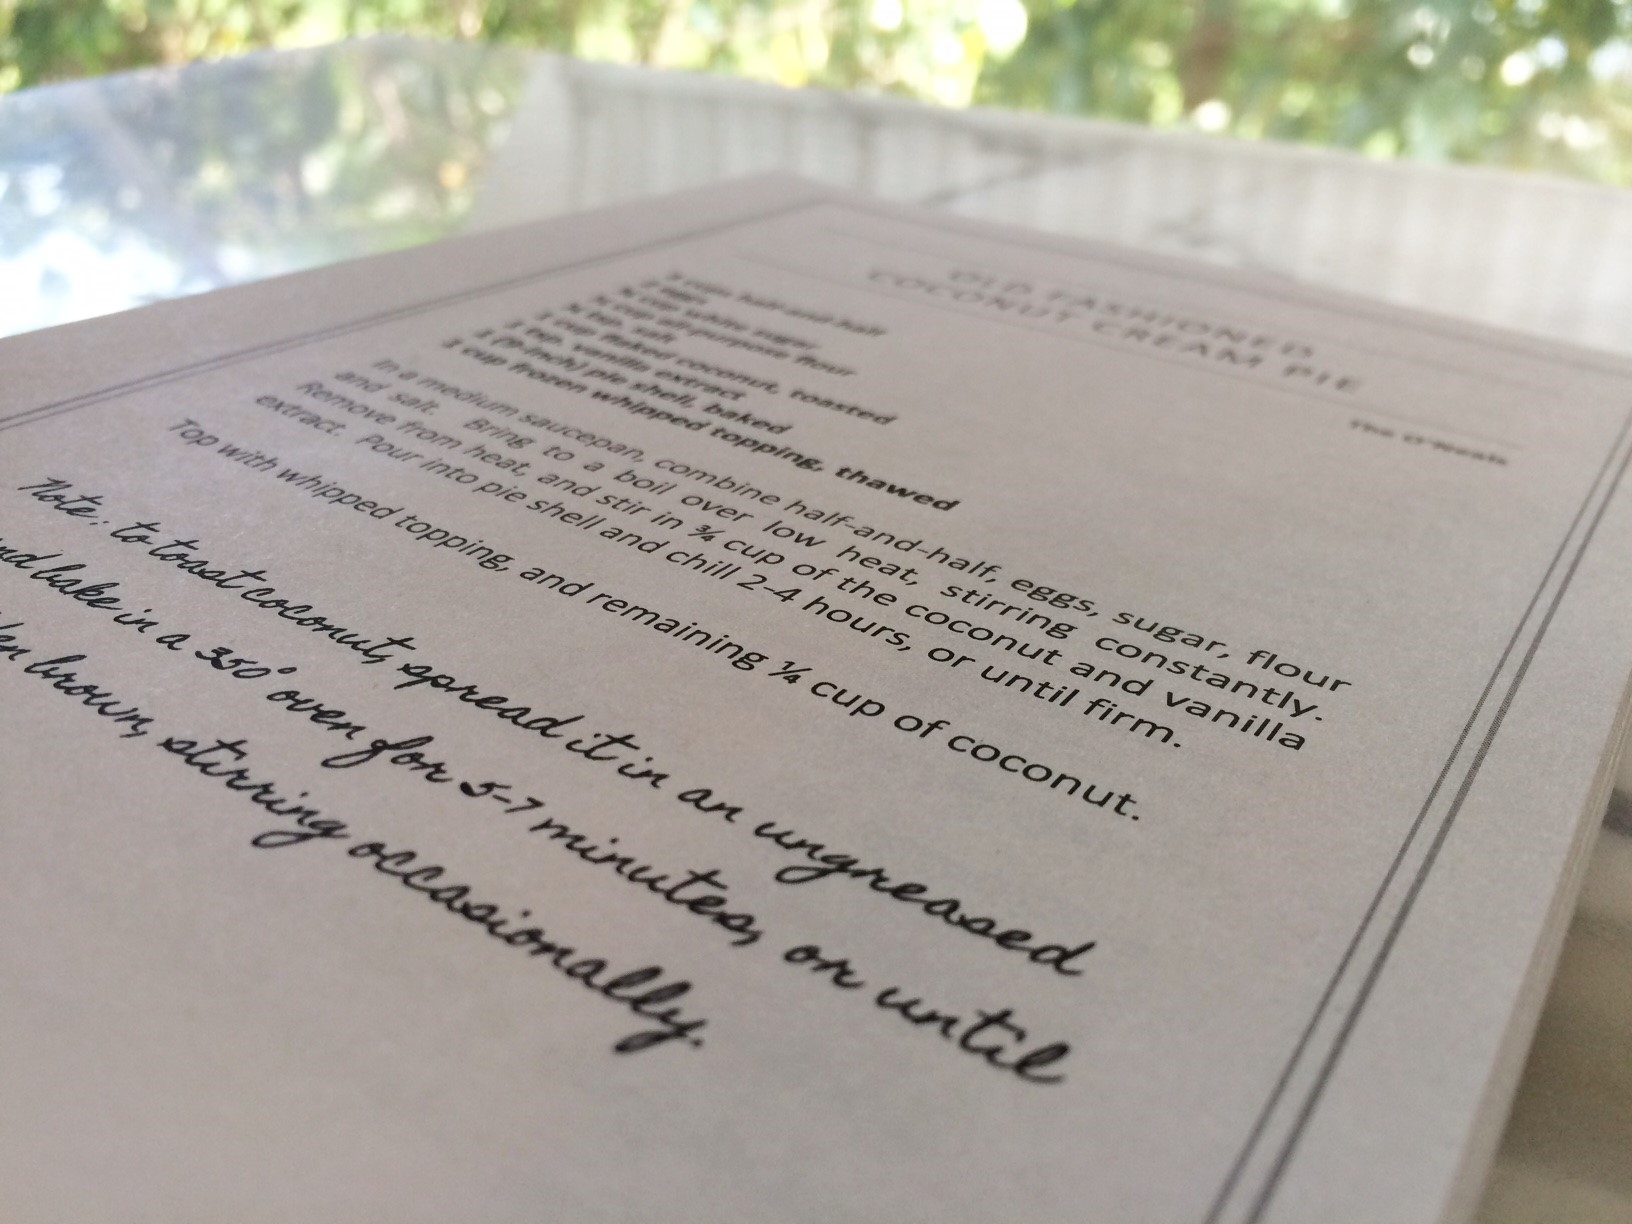 OLD FASHIONED
COCONUT CREAM PIE
The O'Neals
cups half-and-half
eggs
cup white sugar
cup all-purpose flour
tsp. salt
1 cup flaked coconut, toasted
1 tsp. vanilla extract
1 (9-inch) pie shell, baked
1 cup frozen whipped topping, thawed
In a medium saucepan, combine half-and-half, eggs, sugar, flour
and salt. Bring to a boil over low heat, stirring constantly.
Remove from heat, and stir in ¾ cup of the coconut and vanilla
extract. Pour into pie shell and chill 2-4 hours, or until firm.
Top with whipped topping, and remaining ¼ cup of coconut.
Note: to toast coconut, spread it in an ungreased
and bake in a 350° oven for 5-7 minutes, or until
brown, stirring occasionally.